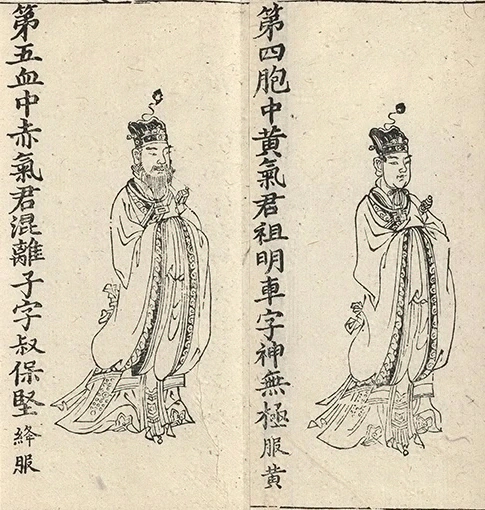 第四胞中黃氣君祖明車字神無極服黃
第五血中赤氣君混離子字叔保堅絳服